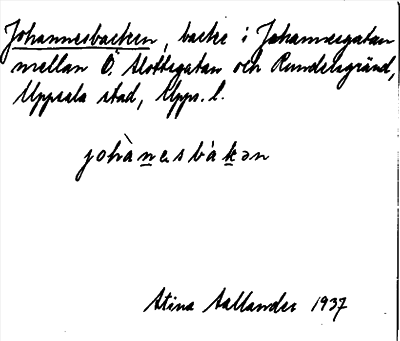 Johannesbacken, backe i Johannesgatan
mellan Ö. Slottsgatan och Rundelsgränd,
Uppsala stad, Upps. l.
johànesbákən
Stina Sallander 1937